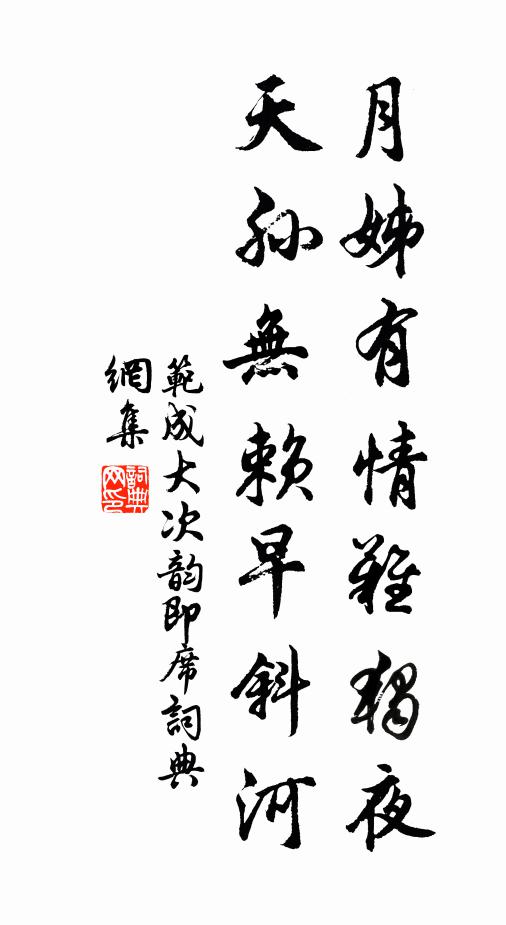 月姊有情難獨夜
天孙無赖早斜河
範成大次韵即席詞典
網集
詞典
网印